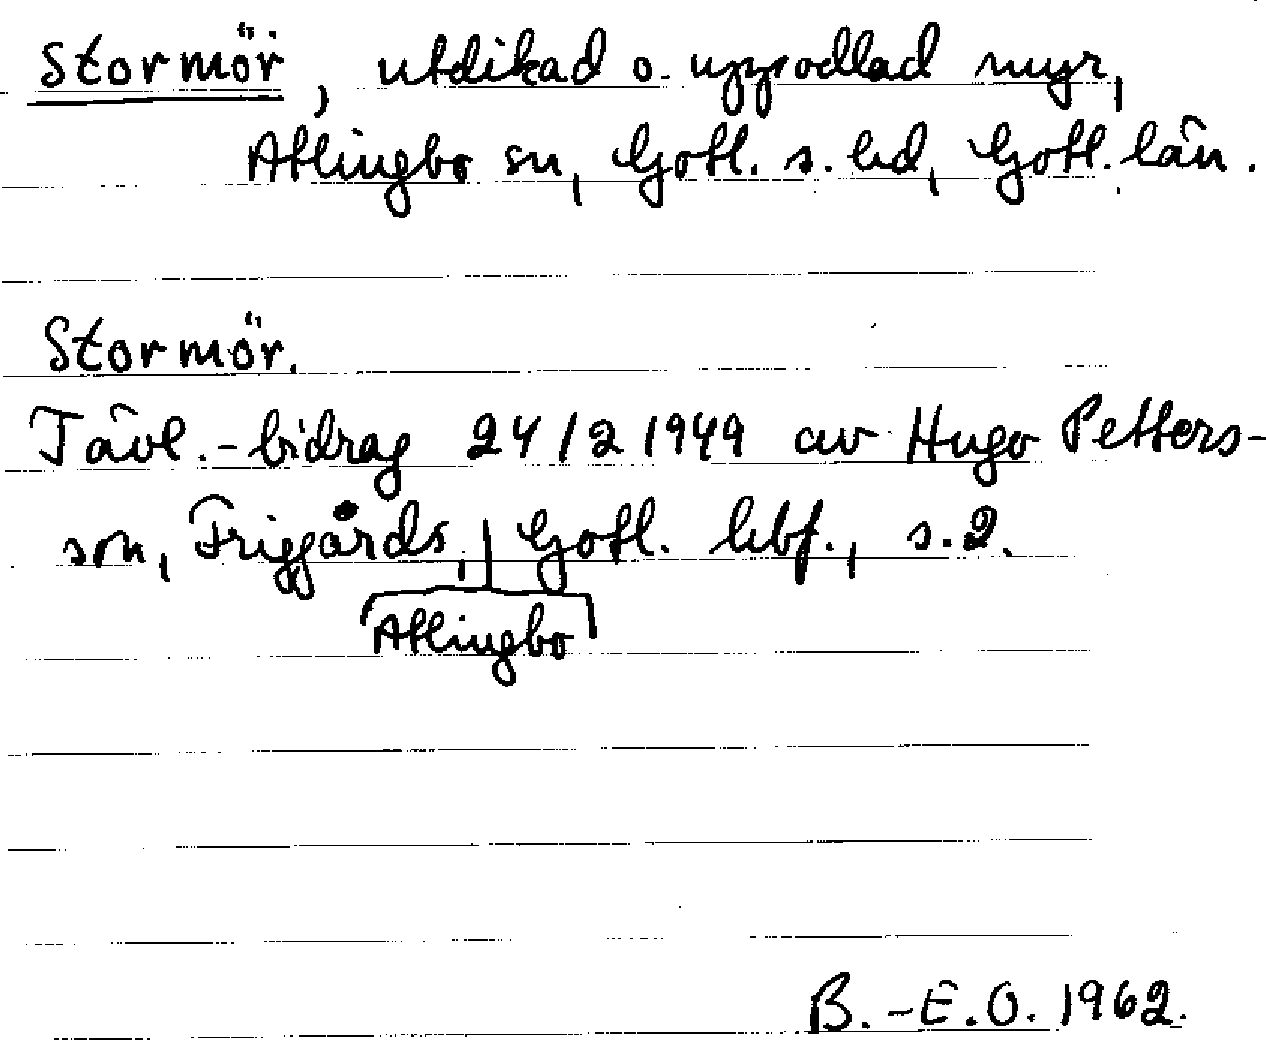 Stormör, utdikad o. uppodlad myr,
Atlingbo sn, Gotl. s. hd, Gotl. län.
Stormör.
Tävl.-bidrag 24/2 1949 av Hugo Petters-
son, Friggårds, | Gotl. hbf., s. 2.
Atlingbo
B.-E.O. 1962.